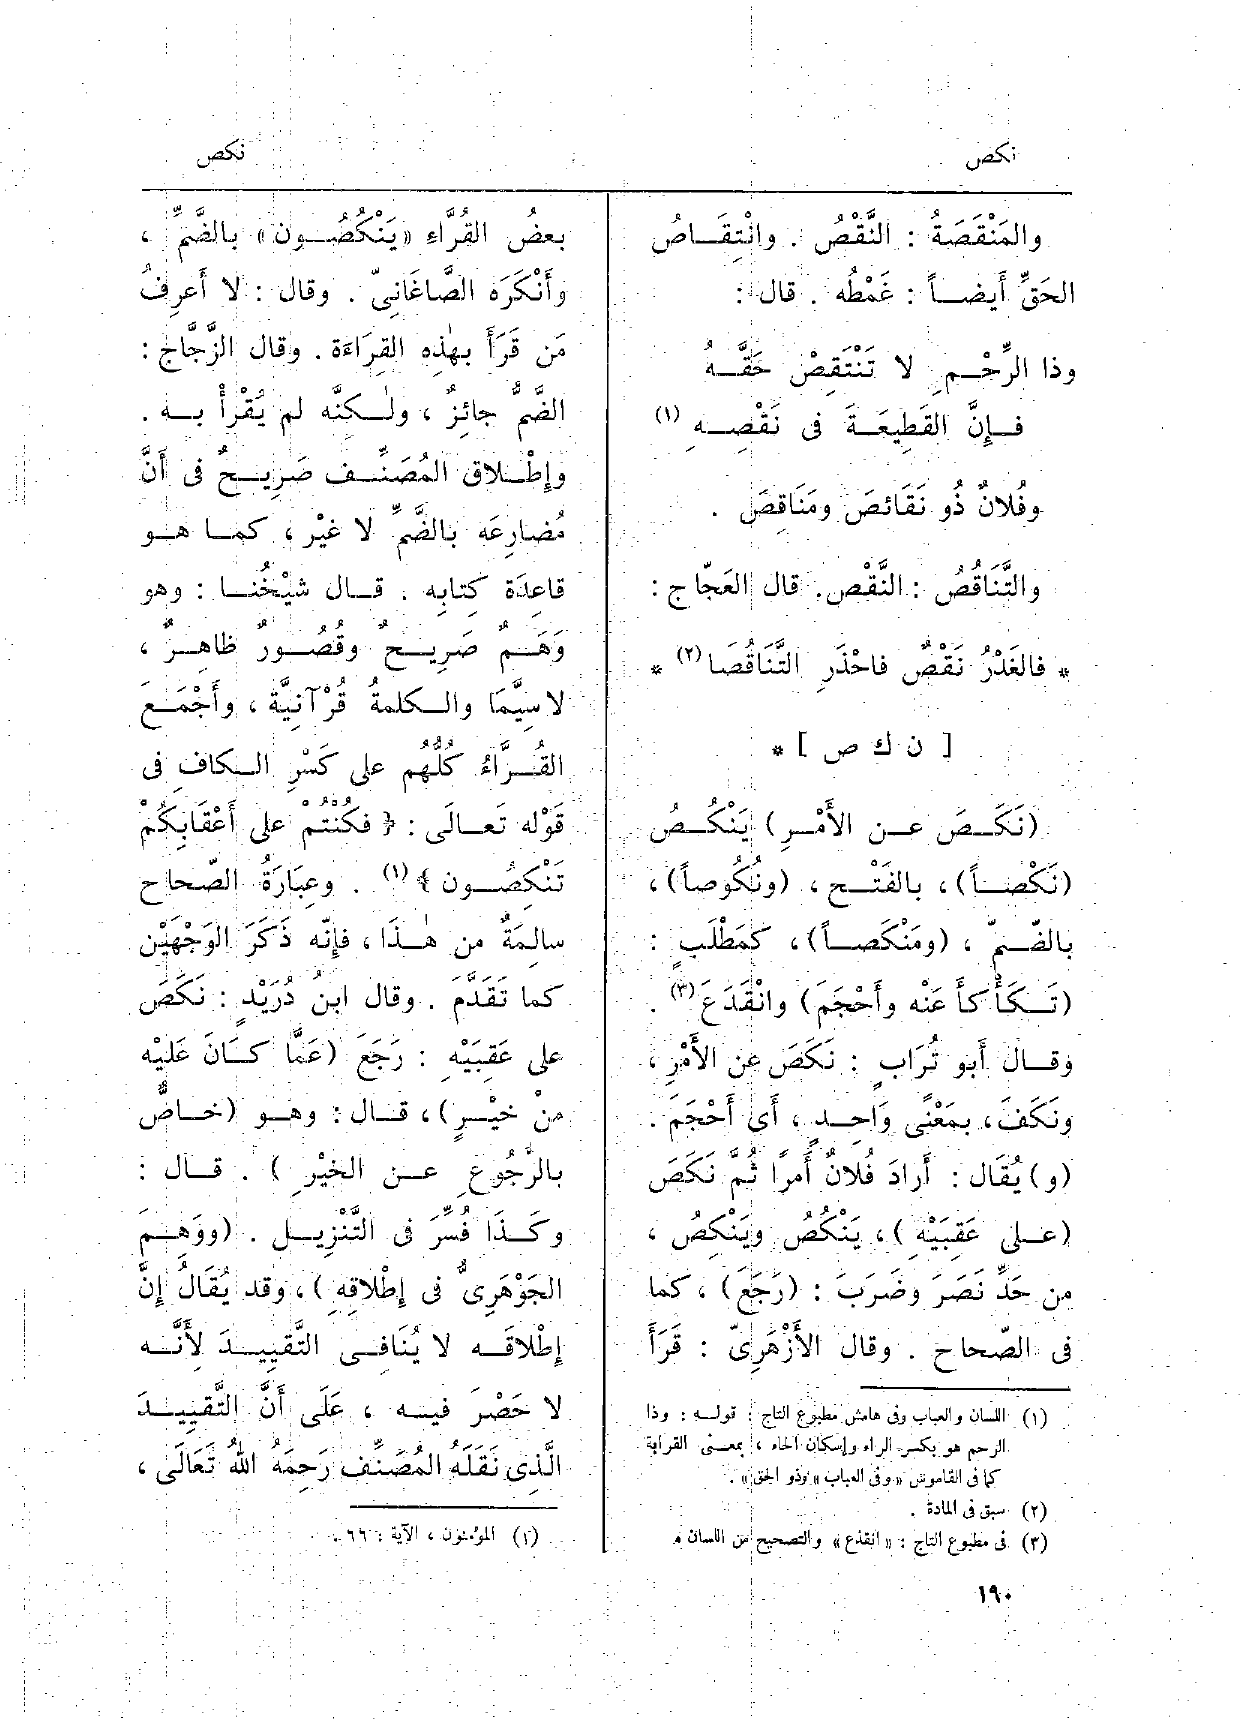 نكص
نكص
والمَنْقَصَةُ : النَّقْصُ . وانْتِقَاصُ
الحَقِّ أَيضاً : غَمْطُه . قال :
وذا الرِّحْمِ لا تَنْتَقِصْ حَقَّهُ
فإِنَّ القَطِيعَةَ فى نَقْصِه (١)
وفُلانٌ ذُو نَقَائصَ ومَنَاقِصَ .
والتَّنَاقُصُ : النَّقْص. قال العَجّاج :
* فالغَدْرُ نَقْصٌ فاحْذَرِ التَّنَاقُصَا (٢) *
[ ن ك ص ] *
(نَكَصَ عن الأَمْرِ) يَنْكُصُ
(نَكْصاً)، بالفَتْح ، (ونُكُوصاً)،
بالضَّمّ ، (ومَنْكَصاً)، كمَطْلَبٍ :
(تَكَأْكأَ عَنْه وأَحْجَمَ) وانْقَدَعَ (٣) .
وقال أَبو تُرَابٍ : نَكَصَ عن الأَمْرِ ،
ونَكَفَ، بمَعْنًى وَاحِدٍ ، أَى أَحْجَمَ .
(و) يُقَال : أَرادَ فُلانٌ أَمرًا ثُمَّ نَكَصَ
(على عَقِبَيْهِ )، يَنْكُصُ ويَنْكِصُ ،
من حَدِّ نَصَرَ وضَرَبَ : (رَجَعَ) ، كما
فى الصّحاح . وقال الأَزْهَرِىّ : قَرَأَ
(١) اللسان والعباب وفى هامش مطبوع التاج : قوله : وذا
الرحم هو بكسر الراء وإسكان الحاء ، بمعنى القرابة
كما فى القاموس «وفى العباب» «وذو الحق» .
(٢) سبق فى المادة .
(٣) فى مطبوع التاج : « انقذع » والتصحيح من اللسان .
بعضُ القُرَّاءِ «يَنْكُصُون» بالضَّمِّ ،
وأَنْكَرَه الصَّاغَانِىّ . وقال : لا أَعرِفُ
مَن قَرَأَ بهٰذِه القِرَاءَة . وقال الزَّجّاج :
الضَّمُّ جائزٌ ، ولٰكنَّه لم يُقْرأْ به .
وإِطْلاق المُصَنِّف صَرِيحٌ فى أَنَّ
مُضارِعَه بالضَّمِّ لا غيْر ، كما هو
قاعِدَة كِتابِه . قال شيْخُنا : وهو
وَهَمٌ صَرِيحٌ وقُصُورٌ ظاهِرٌ ،
لاسِيَّمَا والكلمةُ قُرْآنيَّة ، وأَجْمَعَ
القُرَّاءُ كُلُّهُم على كَسْرِ الكافِ فى
قَوْلِه تَعالَى : ﴿ فكُنْتُم على أَعْقَابِكُمْ
تَنْكِصُون ﴾ (١) . وعِبَارَةُ الصّحاح
سالِمَةٌ من هٰذَا ، فإِنّه ذَكَرَ الوَجْهَيْن
كما تَقَدَّمَ . وقال ابنُ دُرَيْدٍ : نَكَصَ
على عَقِبَيْهِ : رَجَعَ (عَمَّا كَانَ عَليْه
مِنْ خَيْرٍ)، قال : وهو (خاصٌّ
بالرُّجُوعِ عن الخيْرِ ) . قال :
وكَذَا فُسِّرَ فى التَّنْزِيل . (ووَهِمَ
الجَوْهَرِىُّ فى إِطْلاقِهِ )، وقد يُقَالُ إِنَّ
إِطْلاقَه لا يُنَافِى التَّقْيِيدَ لأَنَّه
لا حَصْرَ فيه ، عَلَى أَنَّ التَّقْيِيدَ
الَّذِى نَقَلَهُ المُصَنِّف رَحِمَهُ اللهُ تَعَالَى ،
(١) المؤمنون ، الآية : ٦٦ .
١٩٠